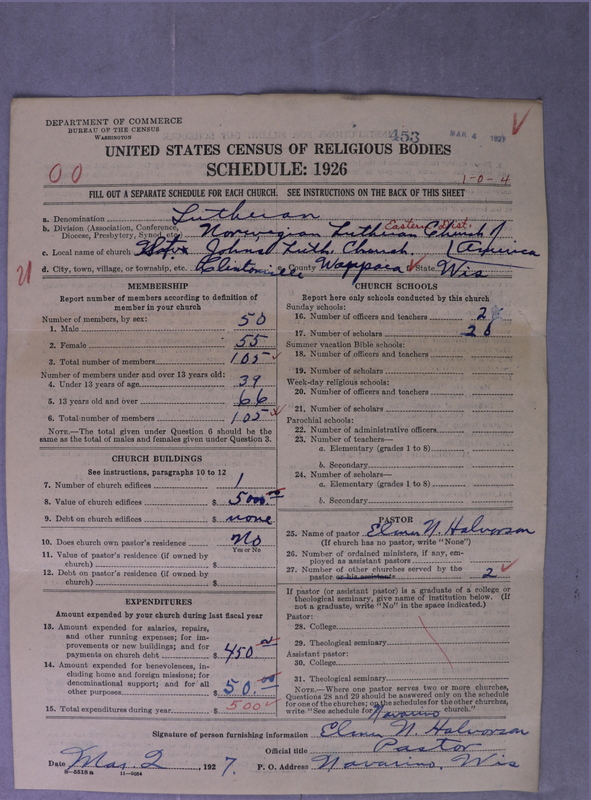 DEPARTMENT OF COMMERCE
BUREAU OF THE CENSUS
WASHINGTON
453
MAR 4 1927
UNITED STATES CENSUS OF RELIGIOUS BODIES
SCHEDULE: 1926
00
1-0-4
FILL OUT A SEPARATE SCHEDULE FOR EACH CHURCH. SEE INSTRUCTIONS ON THE BACK OF THIS SHEET
a. Denomination Lutheran
Eastern Dist.
b. Division (Association, Conference, Diocese, Presbytery, Synod, etc.) Norwegian Lutheran Church / America
c. Local name of church Johns Luth. Church
d. City, town, village, or township, etc. Clintonville County Wappaca State Wis
MEMBERSHIP
Report number of members according to definition of
member in your church
Number of members, by sex:
1. Male 50
2. Female 55
3. Total number of members 105
Number of members under and over 13 years old:
4. Under 13 years of age 39
5. 13 years old and over 66
6. Total number of members 105
NOTE.—The total given under Question 6 should be the
same as the total of males and females given under Question 3.
CHURCH BUILDINGS
See instructions, paragraphs 10 to 12
7. Number of church edifices 1
8. Value of church edifices $ 5000.00
9. Debt on church edifices $ none
10. Does church own pastor's residence? No
Yes or No
11. Value of pastor's residence (if owned by
church) $
12. Debt on pastor's residence (if owned by
church) $
EXPENDITURES
Amount expended by your church during last fiscal year
13. Amount expended for salaries, repairs,
and other running expenses; for im-
provements or new buildings; and for
payments on church debt $ 450.00
14. Amount expended for benevolences, in-
cluding home and foreign missions; for
denominational support; and for all
other purposes $ 50.00
15. Total expenditures during year $ 500
CHURCH SCHOOLS
Report here only schools conducted by this church
Sunday schools:
16. Number of officers and teachers 2
17. Number of scholars 20
Summer vacation Bible schools:
18. Number of officers and teachers
19. Number of scholars
Week-day religious schools:
20. Number of officers and teachers
21. Number of scholars
Parochial schools:
22. Number of administrative officers
23. Number of teachers—
a. Elementary (grades 1 to 8)
b. Secondary
24. Number of scholars—
a. Elementary (grades 1 to 8)
b. Secondary
PASTOR
25. Name of pastor Elmer N. Halvorson
(If church has no pastor, write "None")
26. Number of ordained ministers, if any, em-
ployed as assistant pastors
27. Number of other churches served by the
pastor or his assistants 2
If pastor (or assistant pastor) is a graduate of a college or
theological seminary, give name of institution below. (If
not a graduate, write "No" in the space indicated.)
Pastor:
28. College
29. Theological seminary
Assistant pastor:
30. College
31. Theological seminary
NOTE.—Where one pastor serves two or more churches,
Questions 28 and 29 should be answered only on the schedule
for one of the churches; on the schedules for the other churches,
write "See schedule for Navarino church."
Signature of person furnishing information Elmer N. Halvorson
Official title Pastor
Date Mar. 2, 1927. P. O. Address Navarino, Wis
8-5518a 11-9254